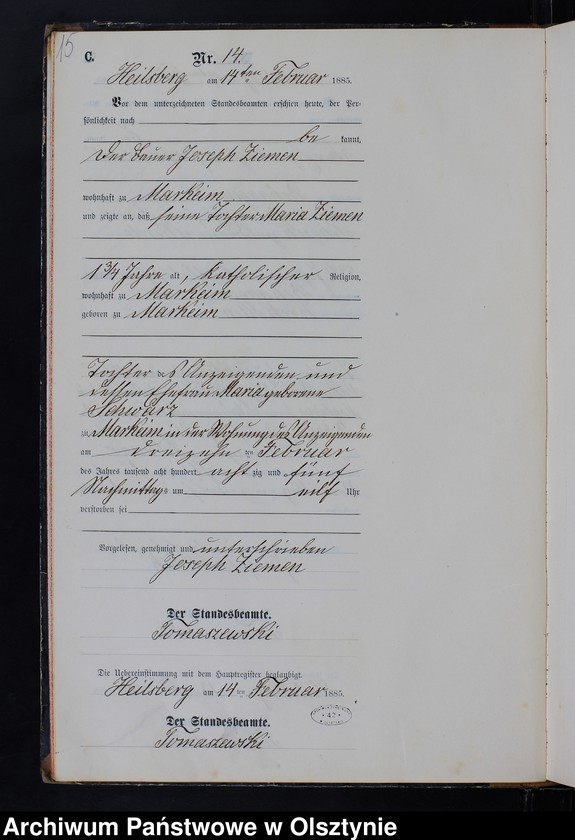 15
C. Nr. 14.
Heilsberg am 14ten Februar 1885.
Vor dem unterzeichneten Standesbeamten erschien heute, der Per-
sönlichkeit nach
be kannt,
Der Bauer Joseph Ziemen
wohnhaft zu Markeim
und zeigte an, daß seine Tochter Maria Ziemen
1 3/4 Jahre alt, katholischer Religion,
wohnhaft zu Markeim
geboren zu Markeim
Tochter des Anzeigenden und
dessen Ehefrau Maria geborene
Schwarz
zu Markeim in der Wohnung des Anzeigenden
am dreizehn ten Februar
des Jahres tausend acht hundert acht zig und fünf
Nachmittags um eilf Uhr
verstorben sei
Vorgelesen, genehmigt und unterschrieben
Joseph Ziemen
Der Standesbeamte.
Tomaszewski
Die Uebereinstimmung mit dem Hauptregister beglaubigt.
Heilsberg am 14ten Februar 1885.
Der Standesbeamte.
Tomaszewski
Archiwum Państwowe w Olsztynie